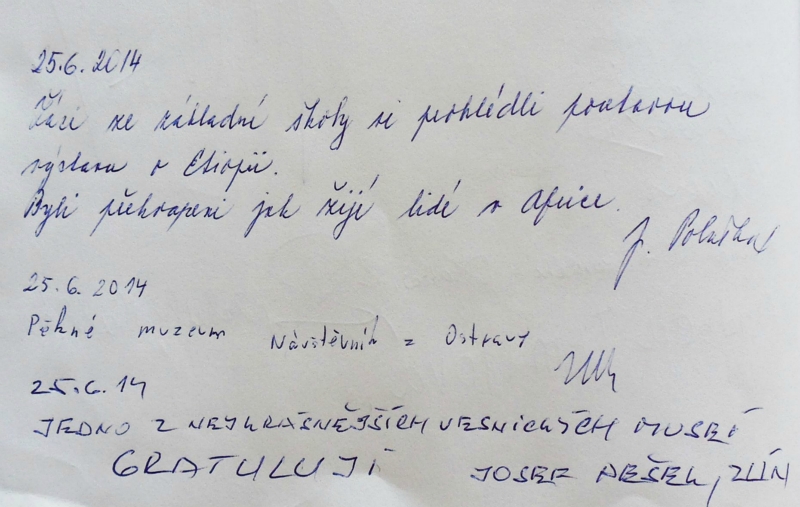 25.6.2014
Žáci ze základní školy si prohlédli poutavou
výstavu o Etiopii.
Byli překvapeni jak žijí lidé v Africe.
J. Poláška
25.6.2014
Pěkné muzeum Návštěvník z Ostravy
25.6.14
JEDNO Z NEJKRÁSNĚJŠÍCH VESNICKÝCH MUSEÍ
GRATULUJI JOSEF PEŠEK, ZLÍN